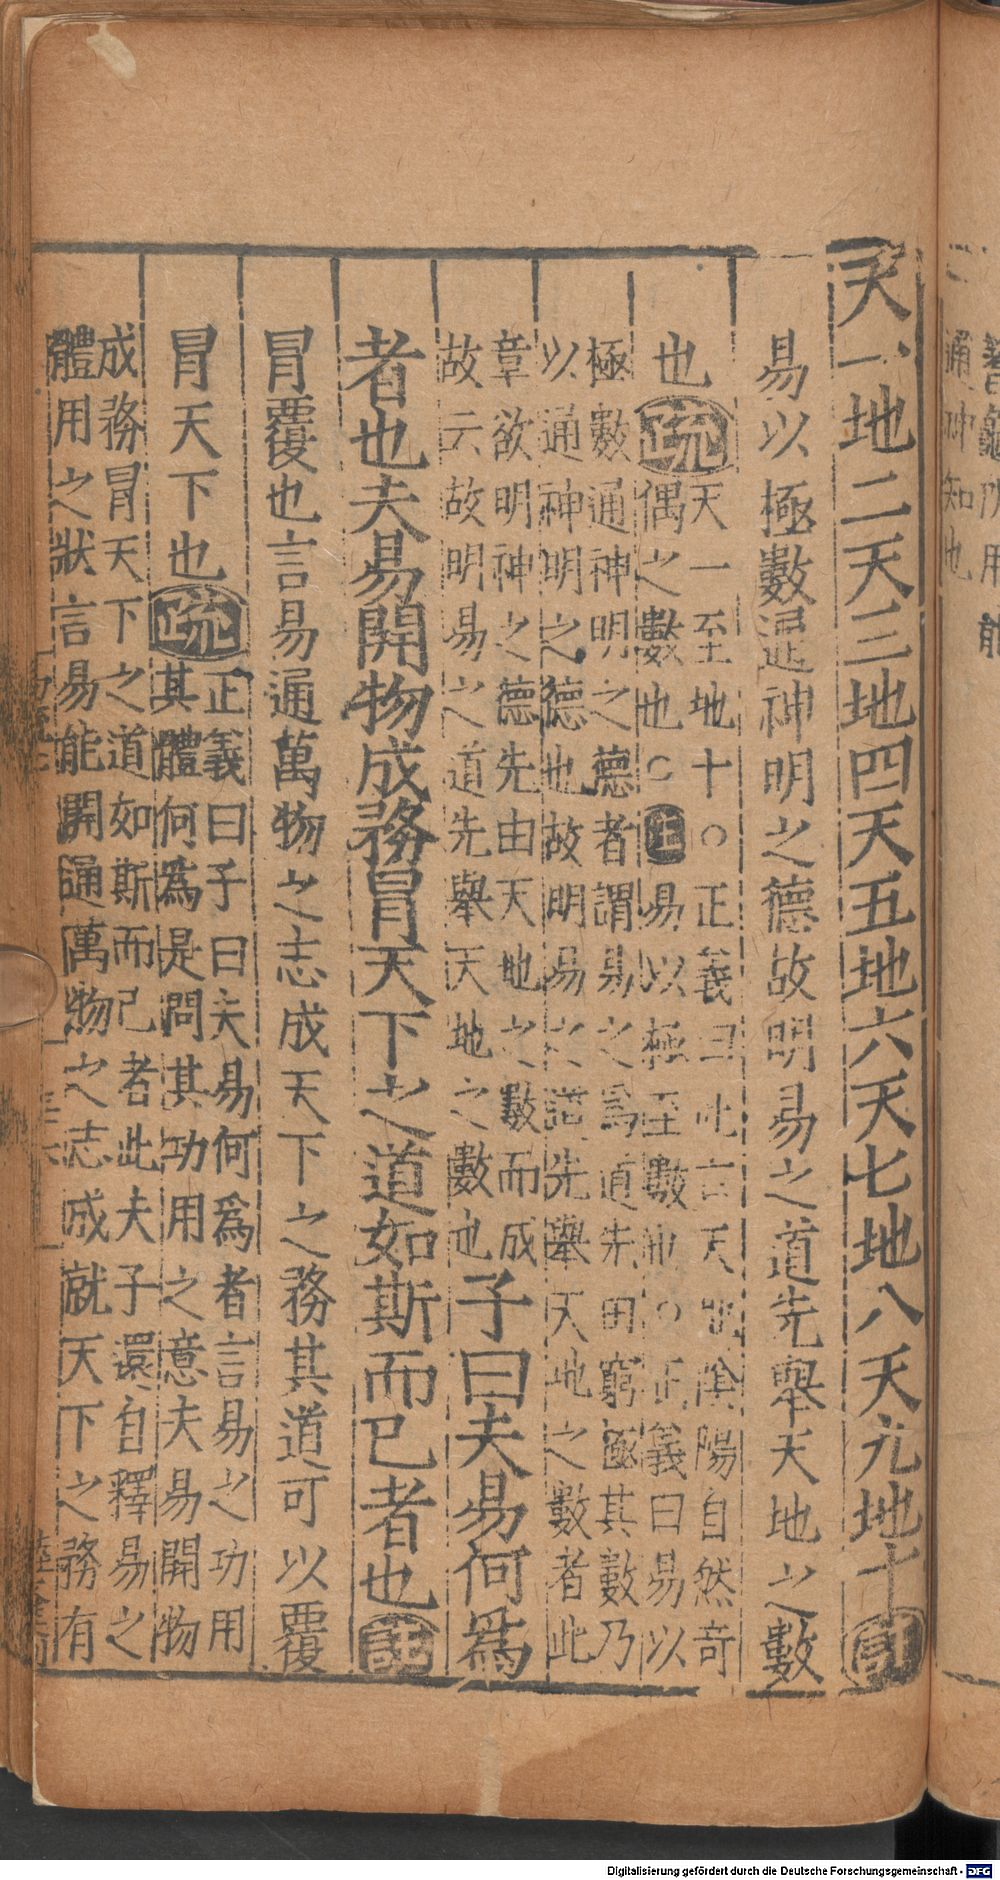 天一地二天三地四天五地六天七地八天九地十註
易以極數通神明之德故明易之道先舉天地之數
也疏
天一至地十○正義曰此言天地陰陽自然奇
偶之數也○註易以極至數也○正義曰易以
極數通神明之德者謂易之爲道先由窮極其數乃
以通神明之德也故明易之道先舉天地之數者此
章欲明神之德先由天地之數而成
故云故明易之道先舉天地之數也
子曰夫易何爲
者也夫易開物成務冒天下之道如斯而已者也註
冒覆也言易通萬物之志成天下之務其道可以覆
冒天下也疏
正義曰子曰夫易何爲者言易之功用
其體何爲是問其功用之意夫易開物
成務冒天下之道如斯而已者此夫子還自釋易之
體用之狀言易能開通萬物之志成就天下之務有
通神知也
Digitalisierung gefördert durch die Deutsche Forschungsgemeinschaft - DFG